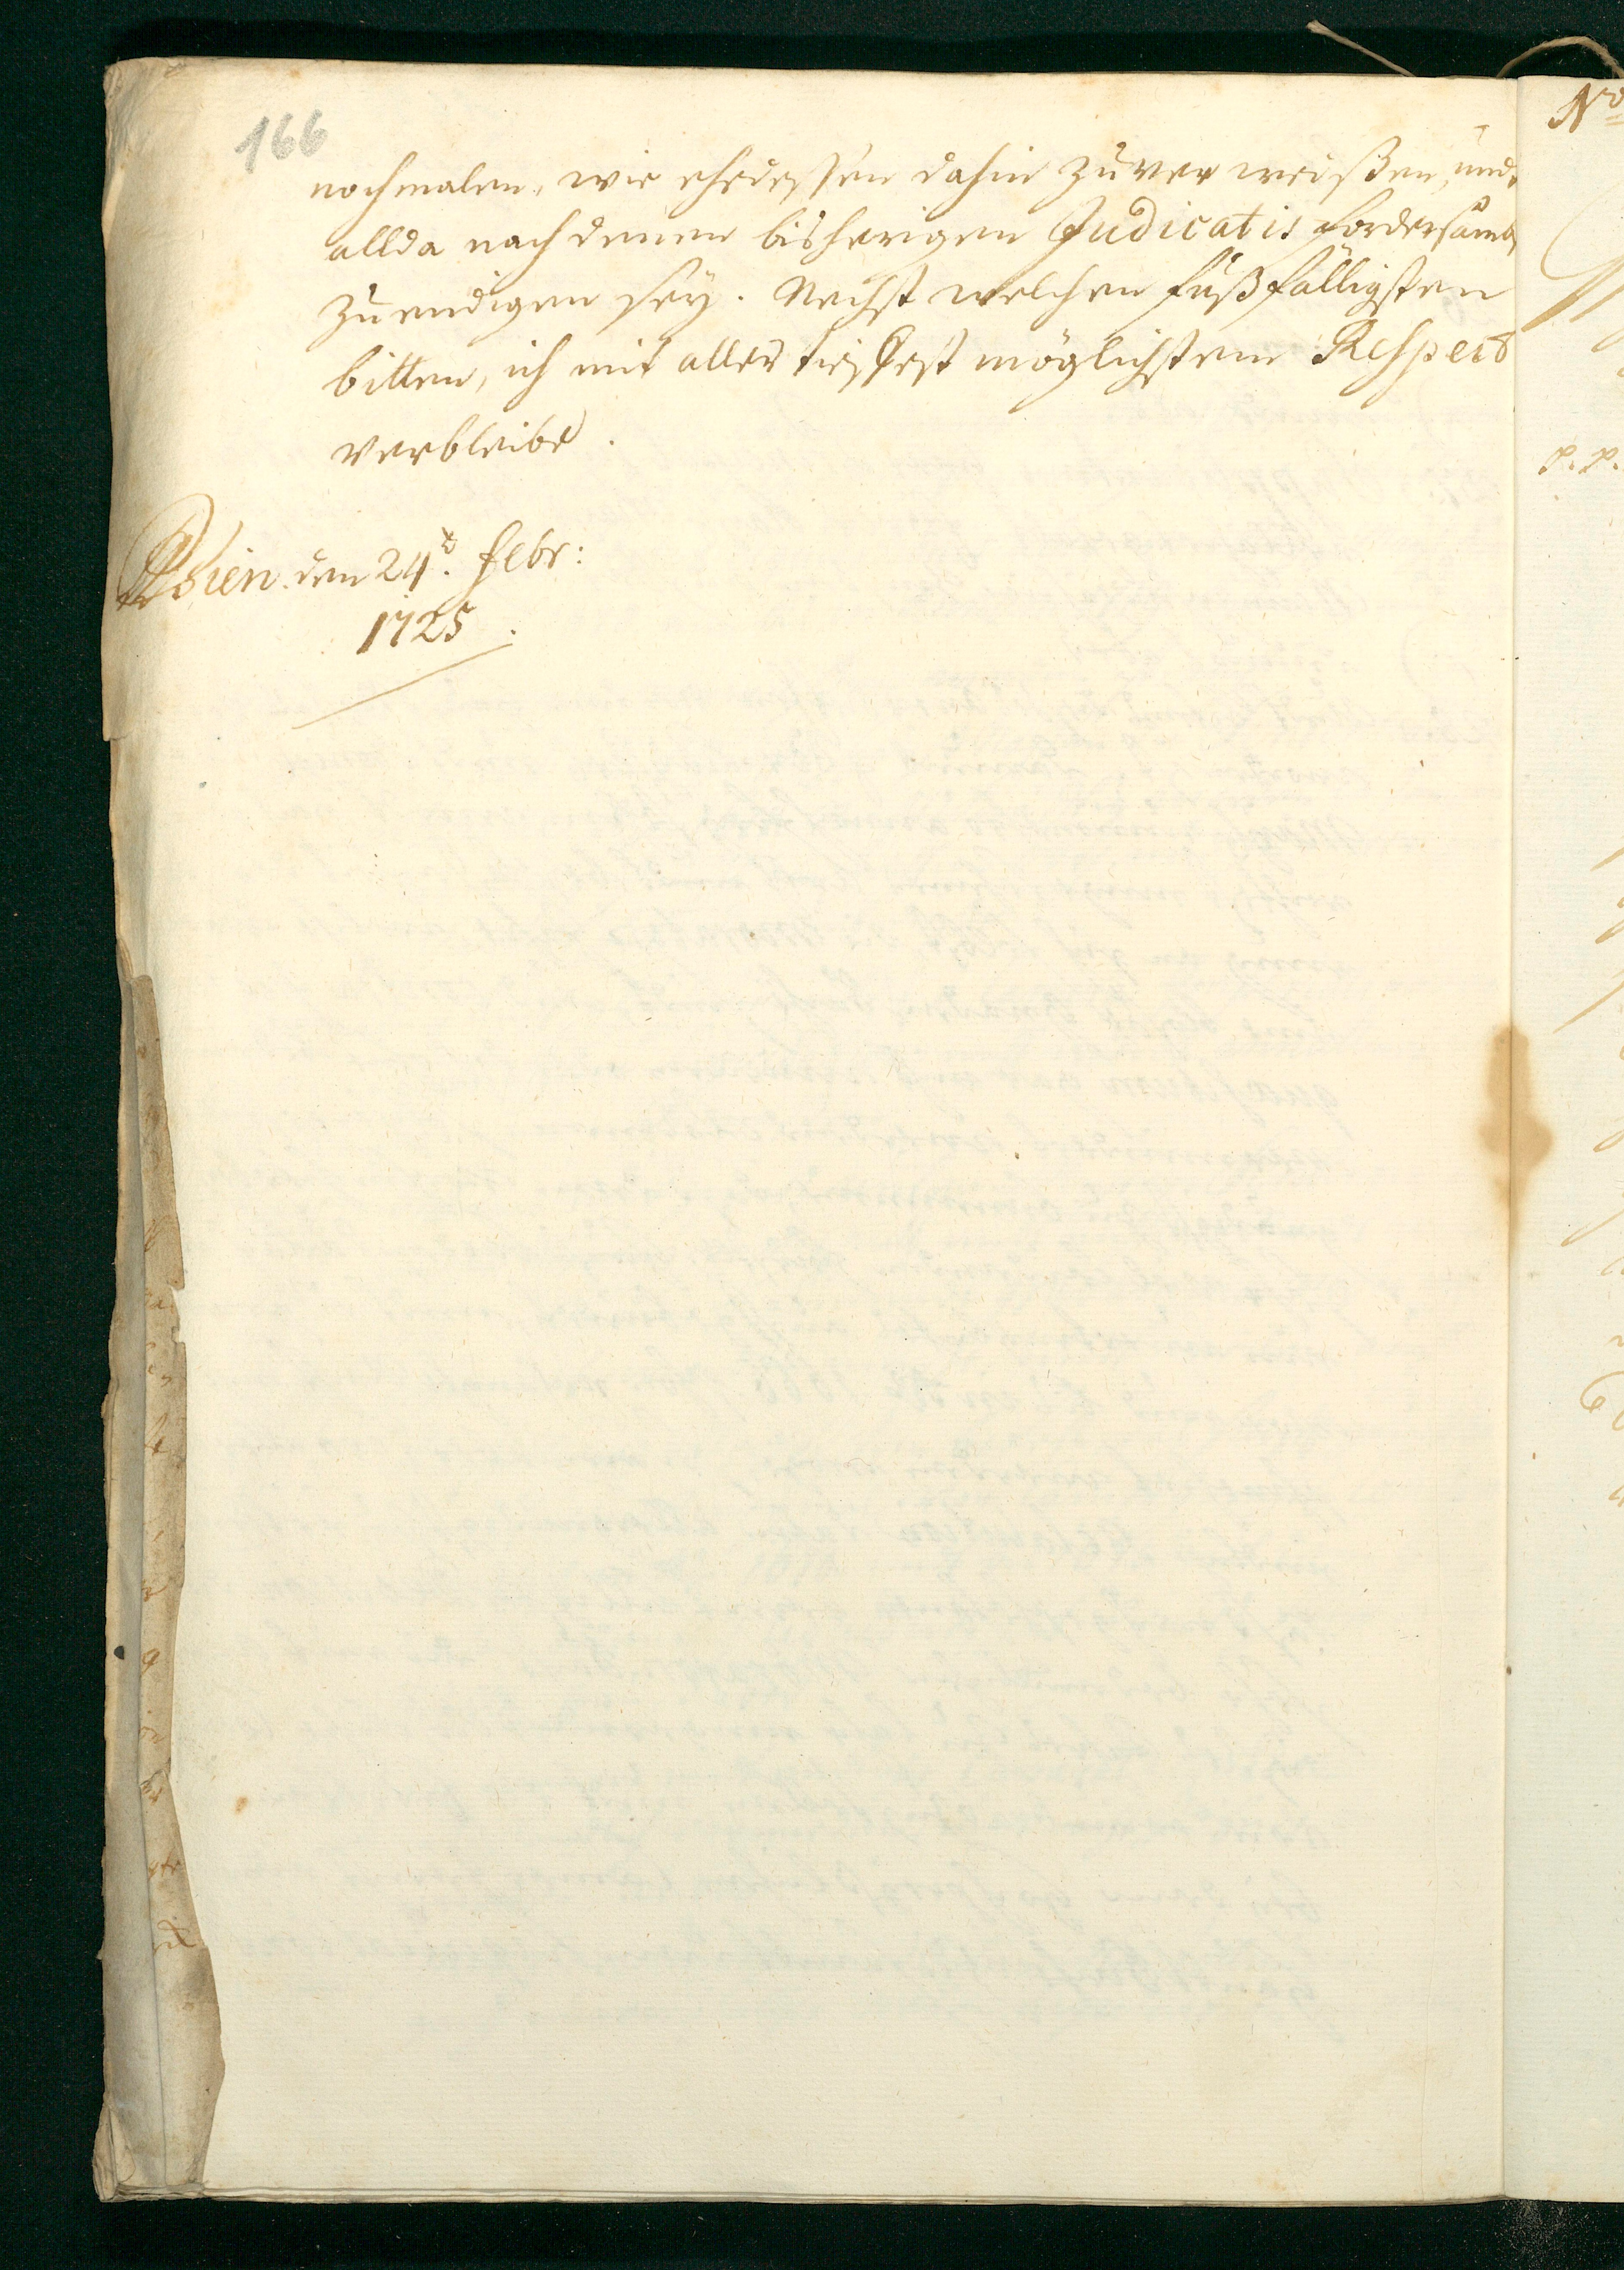 166
nochmalen, wie ehedessen dahin zu ver weißen, und
allda nach denen bisherigen Judicatis fordersamb
zu endigen sey. Nechst welchen fußfälligsten
bitten, ich mit aller tieffest möglichstem Respect
verbleibe.
Wien den 24t. Febr:
1725.
No
p. p.